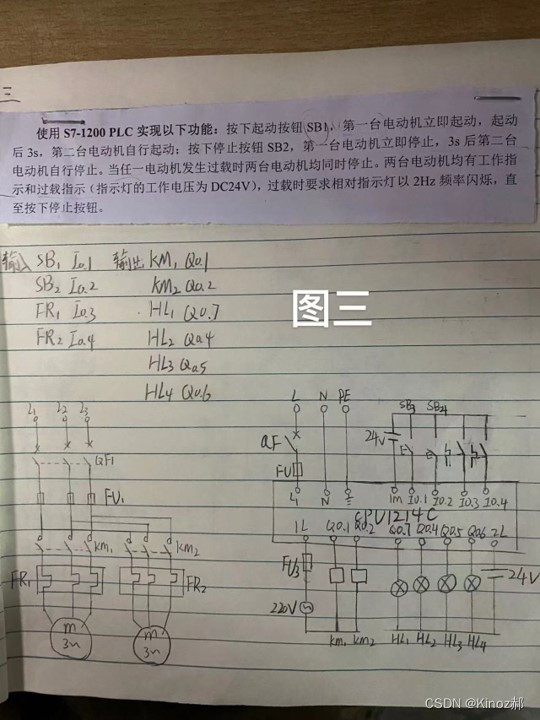 三
使用 S7-1200 PLC 实现以下功能：按下起动按钮 SB1，第一台电动机立即起动，起动
后 3s，第二台电动机自行起动；按下停止按钮 SB2，第一台电动机立即停止，3s 后第二台
电动机自行停止。当任一电动机发生过载时两台电动机均同时停止。两台电动机均有工作指
示和过载指示（指示灯的工作电压为 DC24V），过载时要求相对指示灯以 2Hz 频率闪烁，直
至按下停止按钮。
输入 SB1 I0.1 输出 KM1 Q0.1
SB2 I0.2 KM2 Q0.2
FR1 I0.3 HL1 Q0.3
FR2 I0.4 HL2 Q0.4
HL3 Q0.5
HL4 Q0.6
图三
L1 L2 L3
QF1
FU1
KM1 KM2
FR1 FR2
M 3~ M 3~
L N PE
QF
FU
24V
L1 N
1M I0.1 I0.2 I0.3 I0.4
CPU1214C
1L Q0.1 Q0.2 Q0.3 Q0.4 Q0.5 Q0.6 2L
FU3
220V
24V
KM1 KM2 HL1 HL2 HL3 HL4
CSDN @Kinoz郝